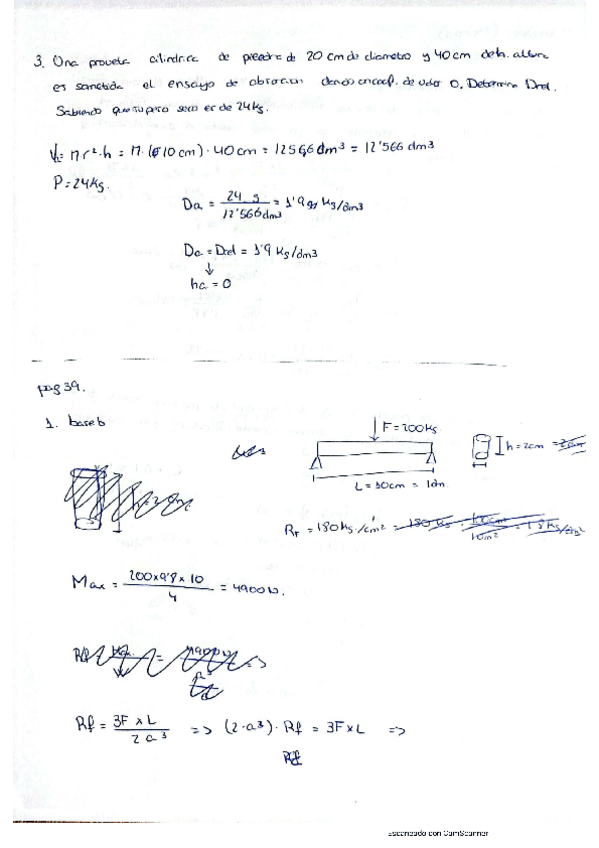 3. Una probeta cilindrica de piedra de 20 cm de diametro y 40 cm de altura
es sometida al ensayo de absorcion dando un coef. de valor 0. Determina Drel.
Sabiendo que su peso seco es de 24 Kg.
V = π r² · h = π · (10 cm) · 40 cm = 12566 dm³ = 12'566 dm³
P = 24 Kg.
Da = 24 g / 12'566 dm³ = 1'9 Kg/dm3
Da = Drel = 1'9 Kg/dm3
↓
ha = 0
pag 39.
1. base b
F = 200 Kg
h = 2cm
L = 10cm = 1dm.
Rr = 180 Kg./cm²
Max = 200x9'8 x 10 / 4 = 4900 N.
Rf = 3F x L / 2 a³ => (2·a³) · Rf = 3F x L =>
Rf
Escaneado con CamScanner